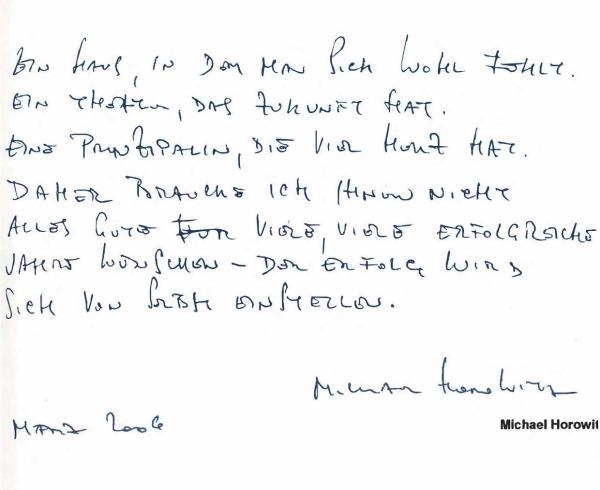 EIN HAUS, IN DEM MAN SICH WOHL FÜHLT.
EIN THEATER, DAS ZUKUNFT HAT.
EINE PRINZIPALIN, DIE VIEL HERZ HAT.
DAHER BRAUCHE ICH IHNEN NICHT
ALLES GUTE FÜR VIELE, VIELE ERFOLGREICHE
JAHRE WÜNSCHEN – DER ERFOLG WIRD
SICH VON SELBST EINSTELLEN.
Michael Horowitz
Michael Horowit
MÄRZ 2006